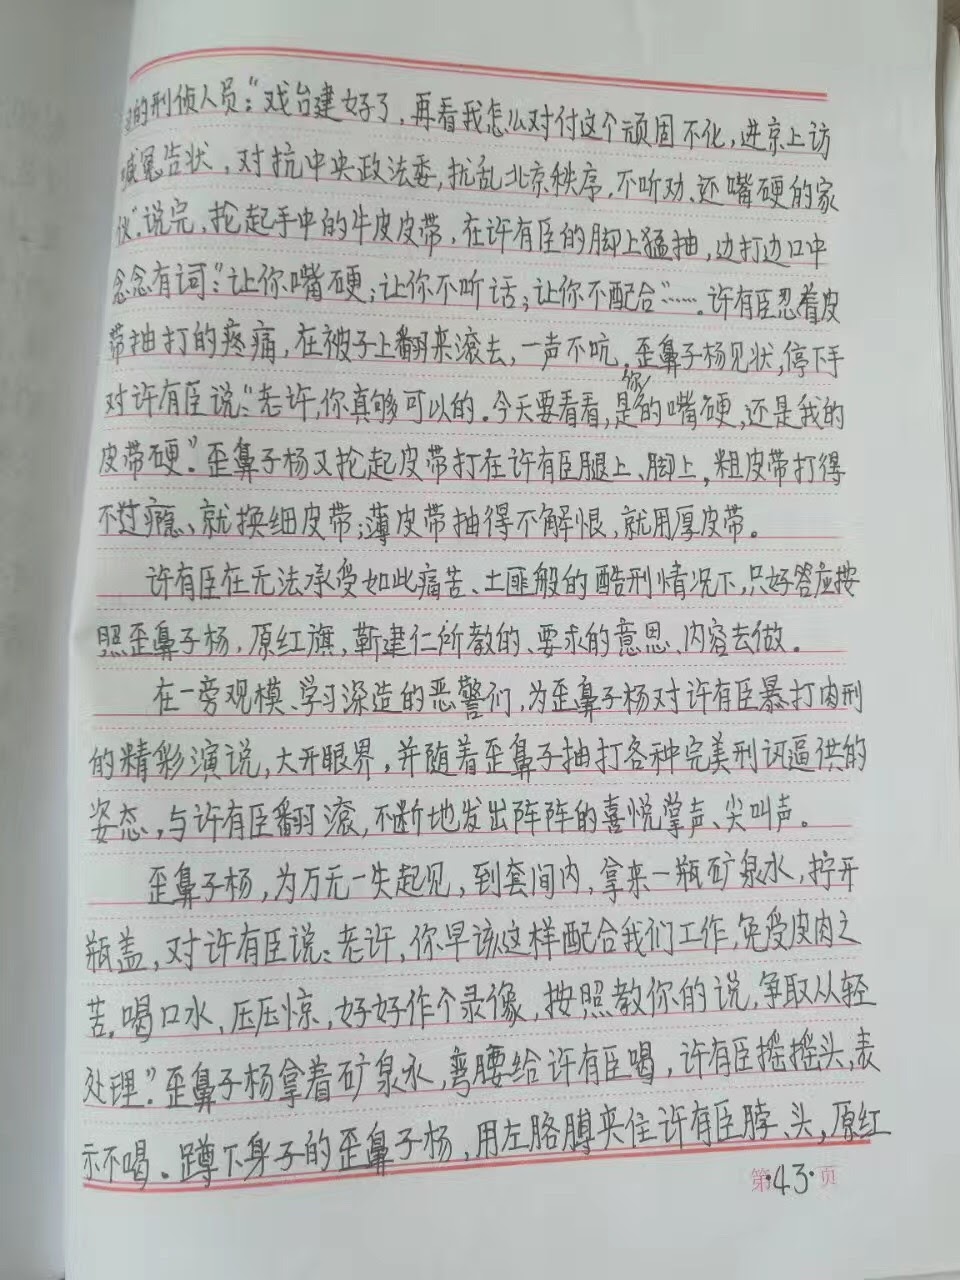 的刑侦人员：“戏台建好了，再看我怎么对付这个顽固不化，进京上访
喊冤告状，对抗中央政法委，扰乱北京秩序，不听劝、还嘴硬的家
伙”。说完，抡起手中的牛皮皮带，在许有臣的脚上猛抽，边打边口中
念念有词：“让你嘴硬；让你不听话；让你不配合”……。许有臣忍着皮
带抽打的疼痛，在被子上翻来滚去，一声不吭。歪鼻子杨见状，停下手
对许有臣说：“老许，你真够可以的。今天要看看，是你的嘴硬，还是我的
皮带硬”。歪鼻子杨又抡起皮带打在许有臣腿上、脚上，粗皮带打得
不过瘾、就换细皮带；薄皮带抽得不解恨、就用厚皮带。
许有臣在无法承受如此痛苦、土匪般的酷刑情况下，只好答应按
照歪鼻子杨，原红旗，靳建仁所教的、要求的意思、内容去做。
在一旁观模、学习深造的恶警们，为歪鼻子杨对许有臣暴打肉刑
的精彩演说，大开眼界，并随着歪鼻子抽打各种完美刑讯逼供的
姿态，与许有臣翻滚，不断地发出阵阵的喜悦掌声、尖叫声。
歪鼻子杨，为万无一失起见，到套间内，拿来一瓶矿泉水，拧开
瓶盖，对许有臣说：老许，你早该这样配合我们工作，免受皮肉之
苦，喝口水、压压惊，好好作个录像，按照教你的说，争取从轻
处理”。歪鼻子杨拿着矿泉水，弯腰给许有臣喝，许有臣摇摇头、表
示不喝。蹲下身子的歪鼻子杨，用左胳膊夹住许有臣脖、头，原红
第·43·页